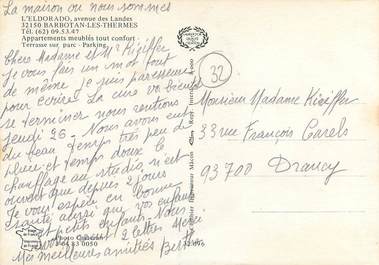 La maison ou nous sommes
L'ELDORADO, avenue des Landes
32150 BARBOTAN-LES-THERMES
Tél. (62) 09.53.47
Appartements meublés tout confort
Terrasse sur parc - Parking
Chers Madame et Mr Kieffer
Je vous fais un mot tout
de même Je suis paresseuse
pour ecrire La cure va bientôt
se terminer nous rentrons
jeudi 26 - Nous avons eut
du beau temps très peu de
pluie et temps doux le
chauffage au studio n'est
ouvert que depuis 2 jours
Je vous espère en bonne
santé ainsi que vos enfants
et petits enfants. Nous
2 lettres Merci
Mes meilleures amitiés
32
Monsieur Madame Kieffer
33 rue François Carels
93700 Drancy